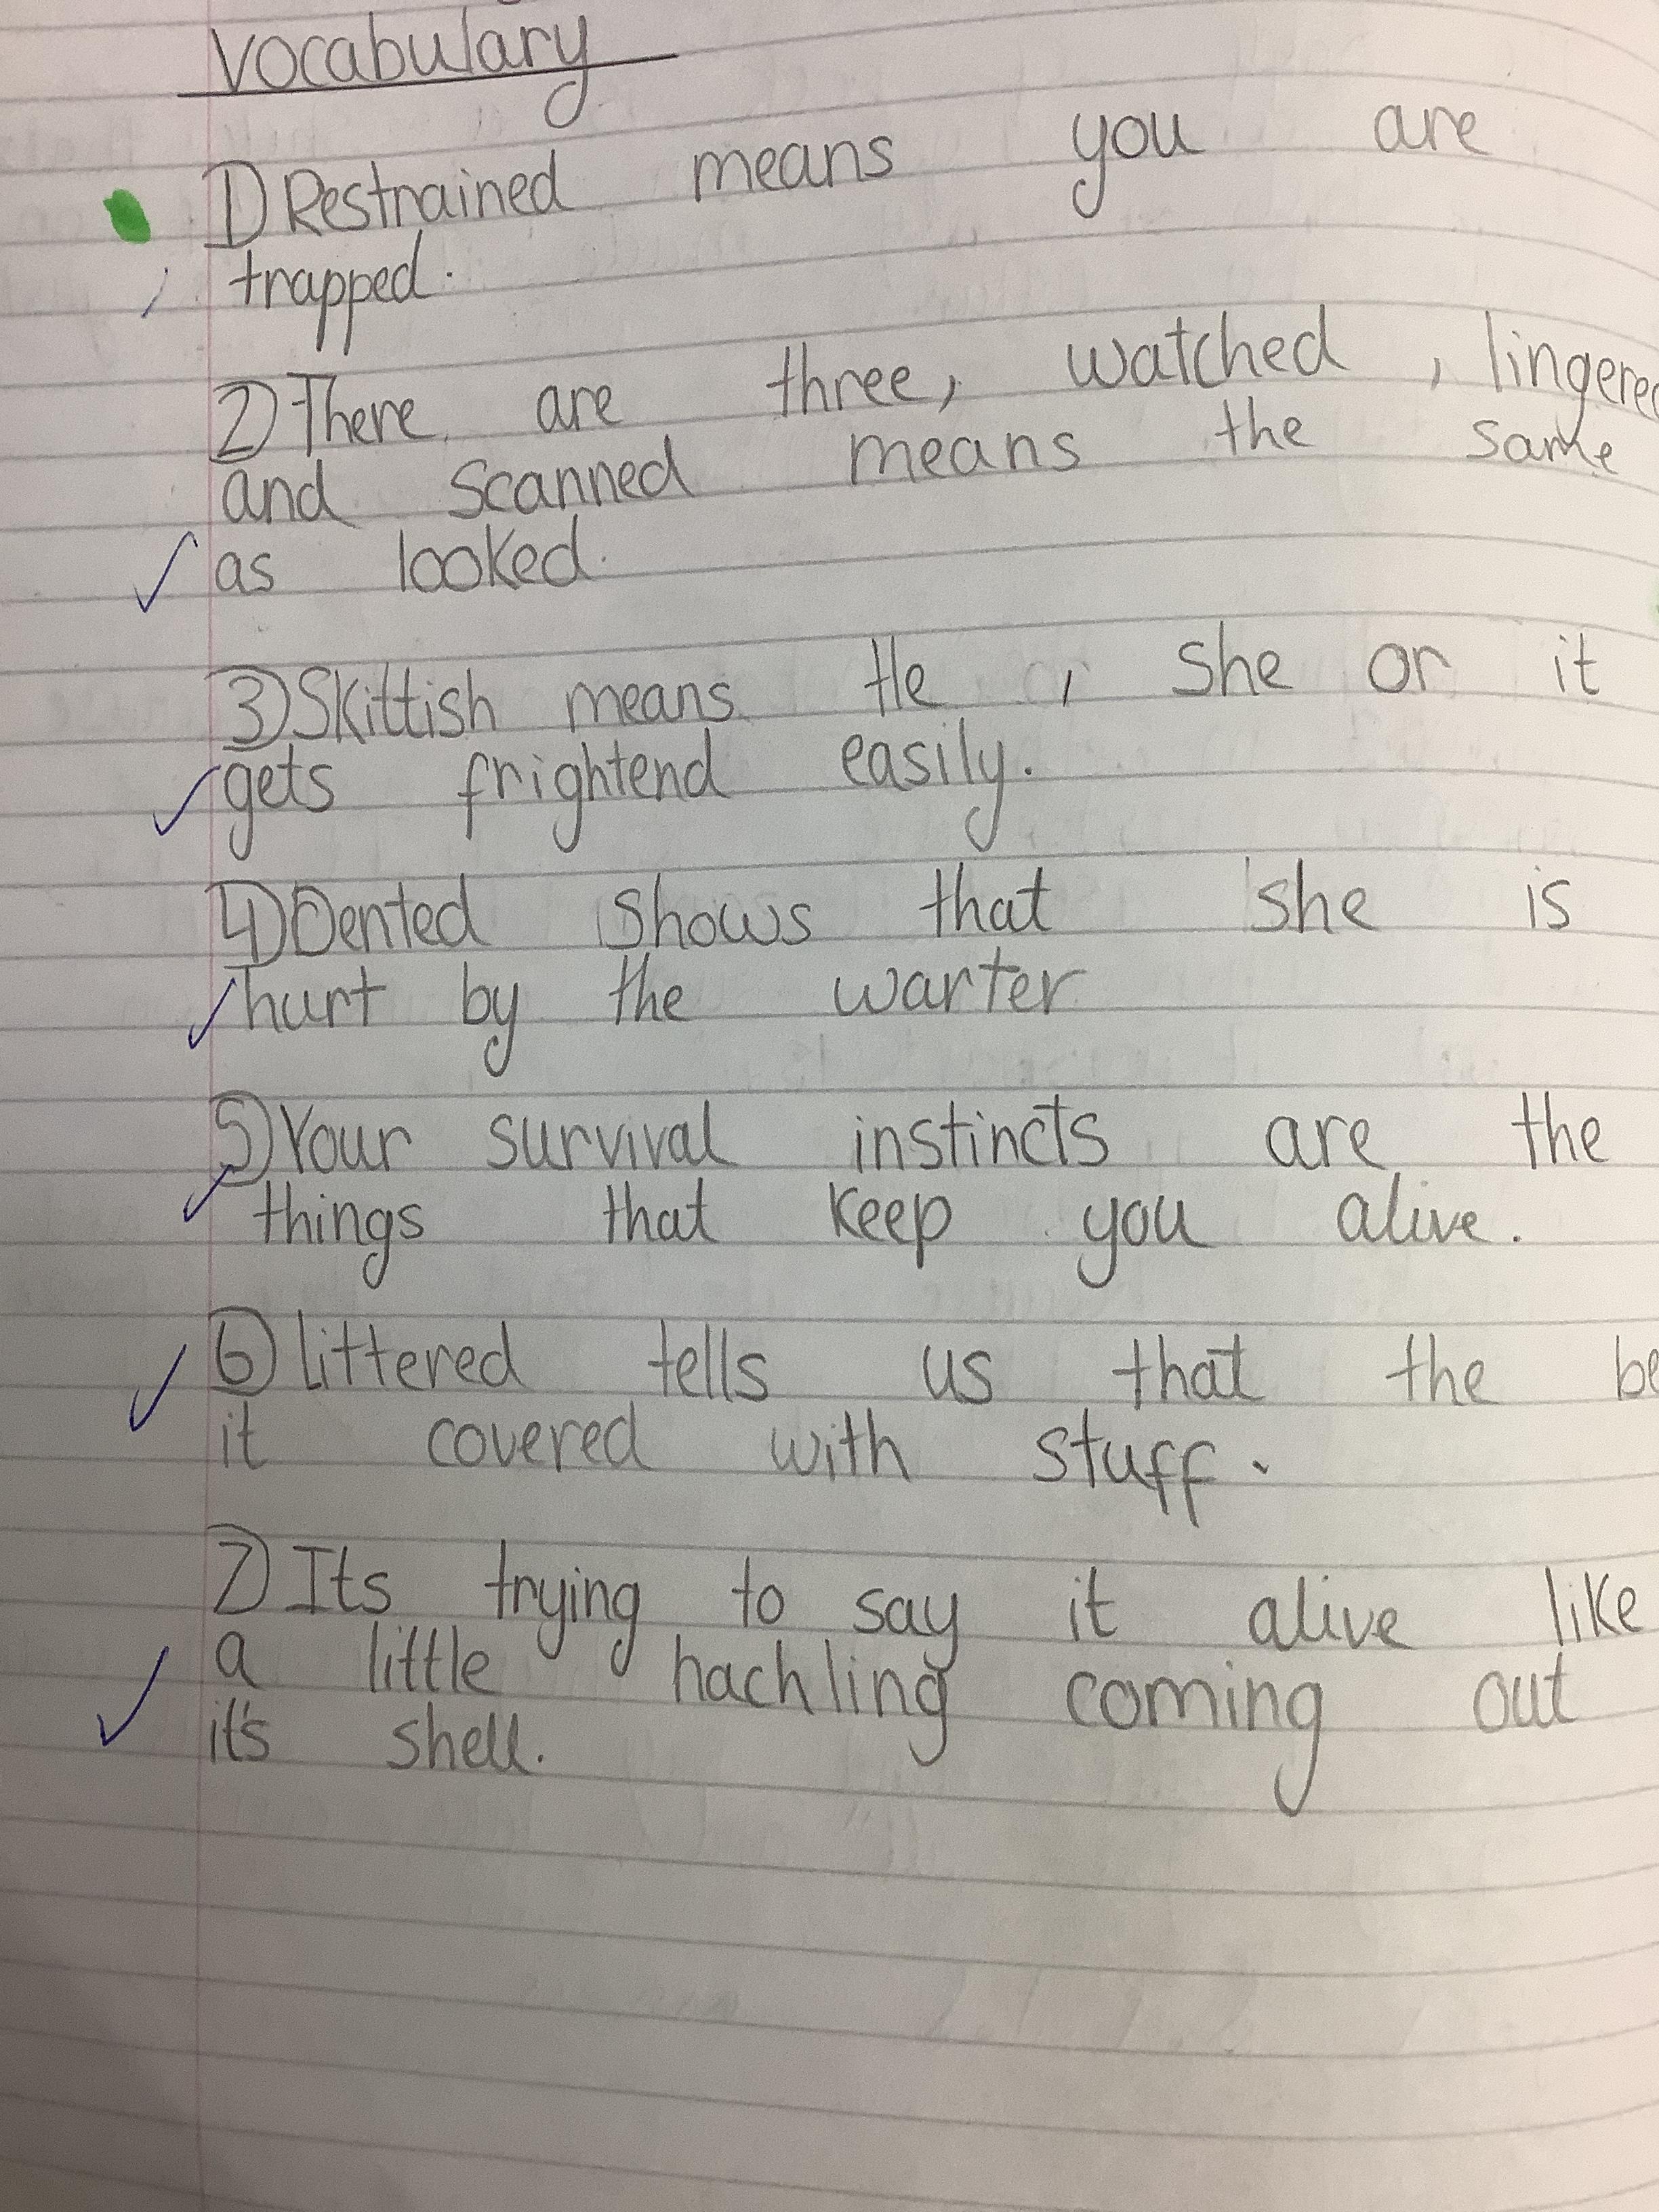 Vocabulary
1) Restrained means you are
trapped.
2) There are three, watched, lingered
and scanned means the same
as looked.
3) Skittish means He, she or it
gets frightend easily.
4) Dented shows that she is
hurt by the warter
5) Your survival instincts are the
things that keep you alive.
6) littered tells us that the
it covered with stuff.
7) Its trying to say it alive like
a little hachling coming out
it's shell.